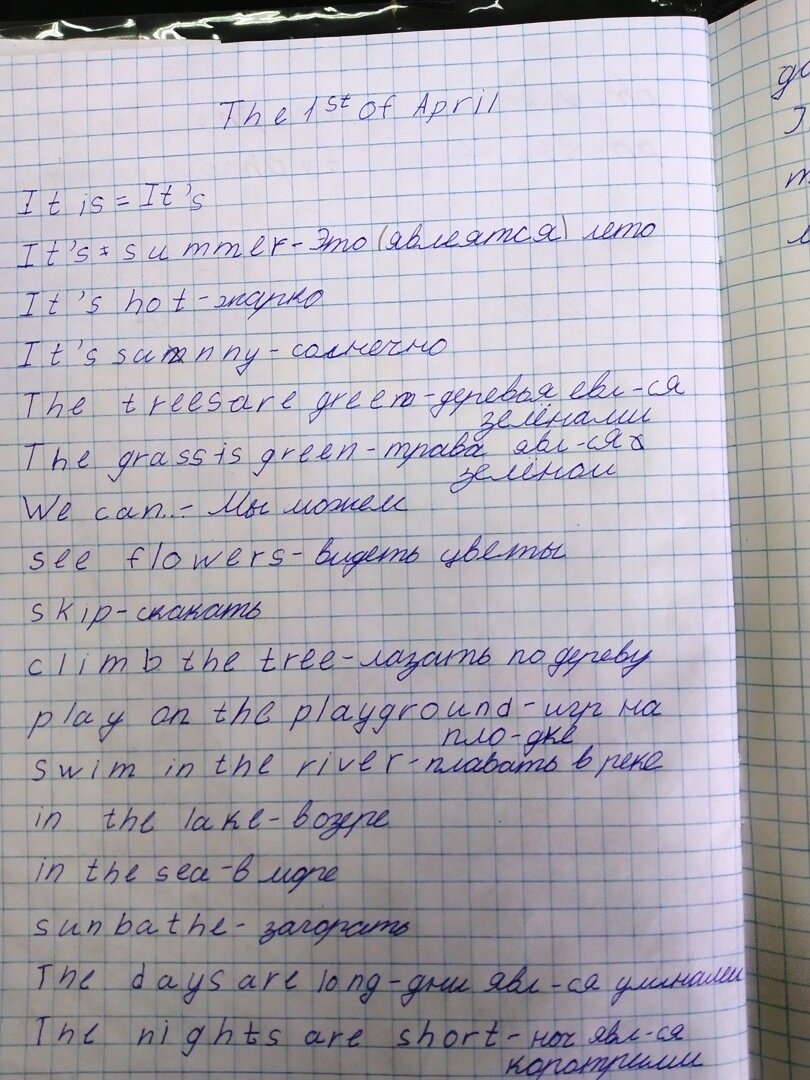 The 1st of April
It is = It's
It's summer - Это (явлеятся) лето
It's hot - жарко
It's sunny - солнечно
The trees are green - деревья евл-ся
зелёнами
The grass is green - трава явл-ся
зеленой
We can... - Мы можем
see flowers - видеть цветы
skip - скакать
climb the tree - лазать по дереву
play on the playground - игр на
пло-дке
swim in the river - плавать в реке
in the lake - в озере
in the sea - в море
sunbathe - загорать
The days are long - дни явл-ся
The nights are short - ноч явл-ся